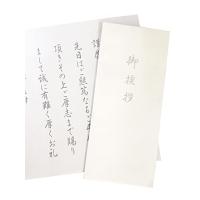 御挨拶
先日はご懇篤なるご
頂きその上ご厚志まで賜り
まして誠に有難く厚くお礼